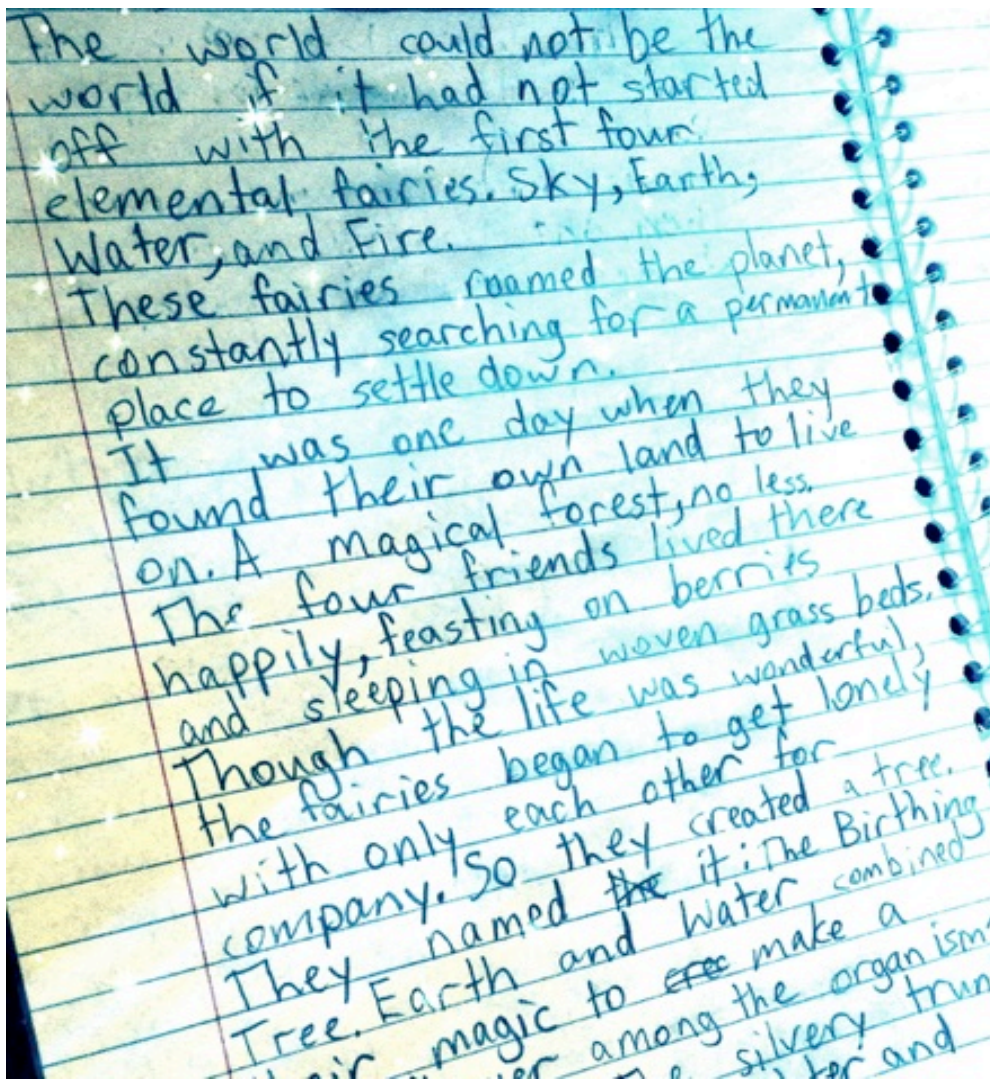 The world could not be the
world if it had not started
off with the first four
elemental fairies. Sky, Earth,
Water, and Fire.
These fairies roamed the planet,
constantly searching for a permanent
place to settle down.
It was one day when they
found their own land to live
on. A magical forest, no less.
The four friends lived there
happily, feasting on berries
and sleeping in woven grass beds.
Though the life was wonderful,
the fairies began to get lonely
with only each other for
company. So they created a tree.
They named the it: The Birthing
Tree. Earth and Water combined
magic to tree make a
among the organism
silvery
and